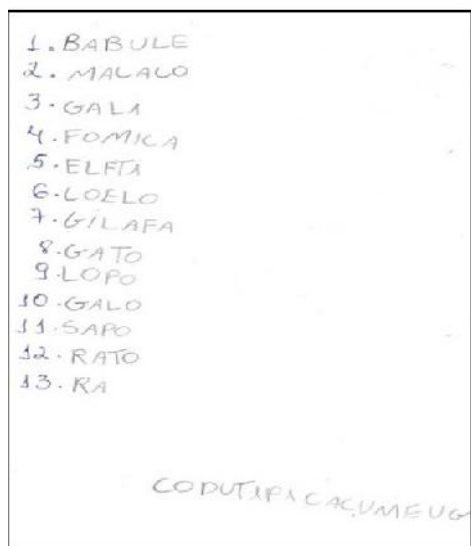 1. BABULE
2. MALALO
3. GALA
4. FOMICA
5. ELFTA
6. LOELO
7. GILAFA
8. GATO
9. LOPO
10. GALO
11. SAPO
12. RATO
13. RA